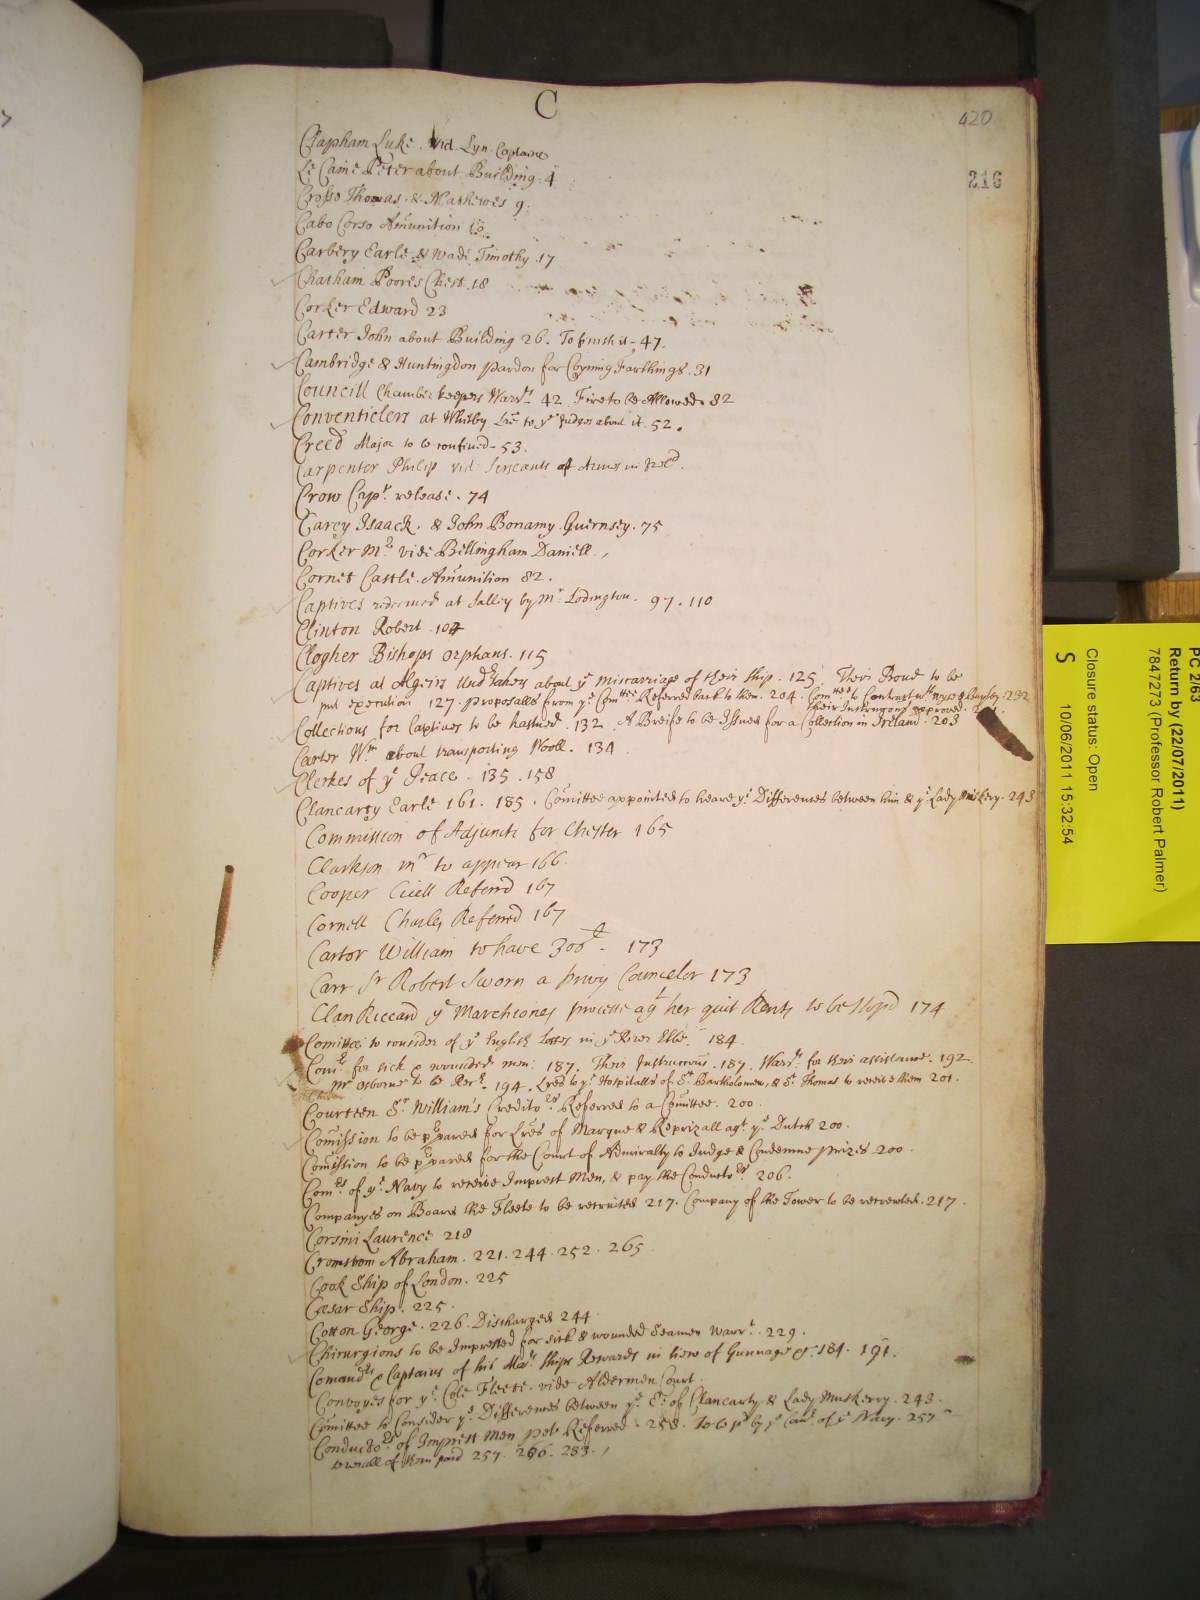 C
420
216
Clapham Luke. vid. Lyn Captaine
Le Caine Peter about Building. 4
Crosse Thomas. & Mathewes 9.
Cabo Corso Amunition
Carbery Earle & Wade Timothy. 17
Chatham Poores Chest. 18
Corker Edward 23
Carter John about Building 26. To finish it - 47.
Cambridge & Huntingdon pardon for Coyning Farthings. 31
Councill Chamber keepers Warrt 42 Fire to be Allowed. 82
Conventiclers at Whitby Lre to ye Judges about it. 52.
Creed Major to be confined - 53.
Carpenter Philip vid Serjeants at Armes in
Crow Capt. release. 74
Carey Isaack. & John Bonamy. Guernsey. 75
Corker Mr vide Bellingham Daniell.
Cornet Castle. Amunition 82.
Captives redeemed at Salley by Mr Lodington. 97. 110
Clinton Robert. 104
Clogher Bishops orphans. 115
Captives at Algeirs Undrtakers about ye miscarriage of their ship. 125. Their to be
put execution 127. proposalls from ye Comttee Referred back to them. 204. to Contract wth 232
their approved.
Collections for Captives to be hastned. 132. A Breife to be Issued for a Collection in Ireland. 203
Carter Wm about transporting Wooll. 134
Clerkes of ye Peace. 135. 158
Clancarty Earle 161. 185. Comittee appointed to heare ye Differences between him & ye Lady Muskery. 243
Commission of Adjuncts for Chester 165
Clarkson mr to appear 166.
Cooper Cicell Referrd 167
Cornell Charles Referred 167
Cartor William to have 300l. 173
Carr Sr Robert Sworn a privy Councelor 173
Clan Riccard ye Marchiones processe agt her quit Rents to be stopd 174
Comittee to consider of ye English losses in ye River Elbe. 184.
Comrs for sick & wounded men: 187. Their Instructions. 187. Warrts for their assistance. 192
Mr Osborne to be Recr. 194. Lres to ye Hospitalls of St Bartholomew, & St Thomas to receive them 201.
Courteen Sr William's Creditors Referred to a Comittee. 200.
Comission to be prpared for Lres of Marque & Reprizall agt ye Dutch 200.
Comission to be prpared for the Court of Admiralty to Judge & Condemne prizes 200.
Comrs of ye Navy to receive Imprest Men, & pay the Conductors. 206.
Companyes on Board the Fleete to be recruited 217. Company of the Tower to be recrewted. 217.
Corsini Laurence 218
Cromstom Abraham. 221. 244. 252. 265
Cook Ship of London. 225
Cæsar Ship. 225.
Cotton George. 226. Discharged 244
Chirurgions to be Impressed for sick & wounded Seamen Warrt. 229.
Comandrs & Captains of his Mats Ships Rewards in liew of Gunnage &c. 184. 191.
Convoyes for ye Cole Fleete. vide Aldermen Court.
Comittee to Consider ye Differences between ye E: of Clancarty & Lady Muskerry. 243.
Conductors of Imprest Men petr Referred. 258. To be pd by ye of ye Navy. 257
to all of them paid 257. 283.
PC 2/63
Return by (22/07/2011)
7847273 (Professor Robert Palmer)
Closure status: Open
S 10/06/2011 15:32:54